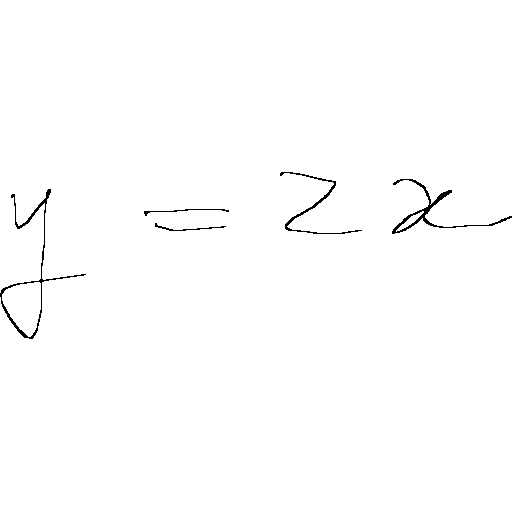 y = 2x